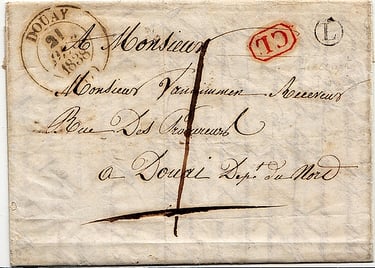 DOUAY
21
1838
CL
L
A Monsieur
Monsieur Vanhimmen Receveur
Rue Des Procureurs
1
a Douai Dep.t du Nord